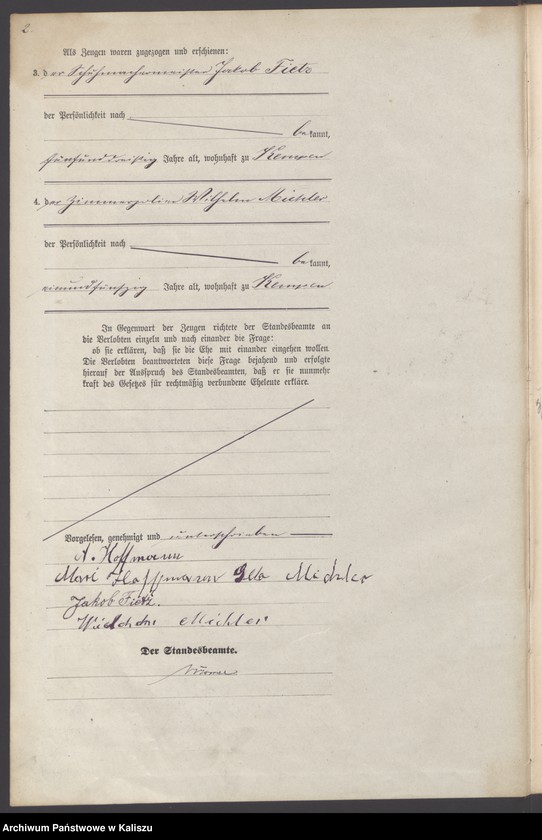 2.
Als Zeugen waren zugezogen und erschienen:
3. der Schuhmachermeister Jakob Fietz
der Persönlichkeit nach
bekannt,
fünfunddreißig Jahre alt, wohnhaft zu Kempen
4. der Zimmerpolier Wilhelm Michler
der Persönlichkeit nach
bekannt,
einundfünfzig Jahre alt, wohnhaft zu Kempen
In Gegenwart der Zeugen richtete der Standesbeamte an
die Verlobten einzeln und nach einander die Frage:
ob sie erklären, daß sie die Ehe mit einander eingehen wollen.
Die Verlobten beantworteten diese Frage bejahend und erfolgte
hierauf der Ausspruch des Standesbeamten, daß er sie nunmehr
kraft des Gesetzes für rechtmäßig verbundene Eheleute erkläre.
Vorgelesen, genehmigt und unterschrieben
A. Hoffmann
Hoffmann Michler
Jakob Fietz.
Michler
Der Standesbeamte.
Archiwum Państwowe w Kaliszu